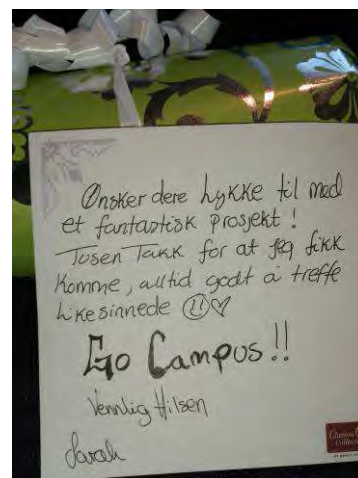 Ønsker dere Lykke til med
et fantastisk prosjekt!
Tusen Takk for at jeg fikk
komme, alltid godt å treffe
Likesinnede
Go Campus!!
Vennlig Hilsen
Sarah